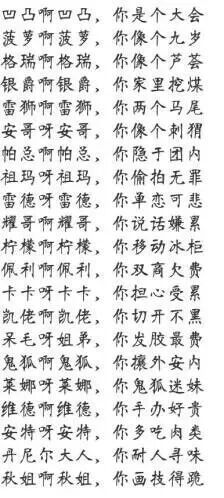 凹凸啊凹凸，你是个大会
菠萝啊菠萝，你像个九岁
格瑞啊格瑞，你像个芦荟
银爵啊银爵，你家里挖煤
雷狮啊雷狮，你两个马尾
安哥呀安哥，你像个刺猬
帕总啊帕总，你隐于团内
祖玛呀祖玛，你偷拍无罪
雷德呀雷德，你单恋可悲
耀哥呀耀哥，你说话嫌累
柠檬啊柠檬，你移动冰柜
佩利啊佩利，你双商欠费
卡卡呀卡卡，你担心受累
凯佬啊凯佬，你切开不黑
呆毛呀姐弟，你发胶最费
鬼狐啊鬼狐，你攘外安内
莱娜呀莱娜，你鬼狐迷妹
维德啊维德，你手办好贵
安特呀安特，你多吃肉类
丹尼尔大人，你耐人寻味
秋姐啊秋姐，你画技得跪